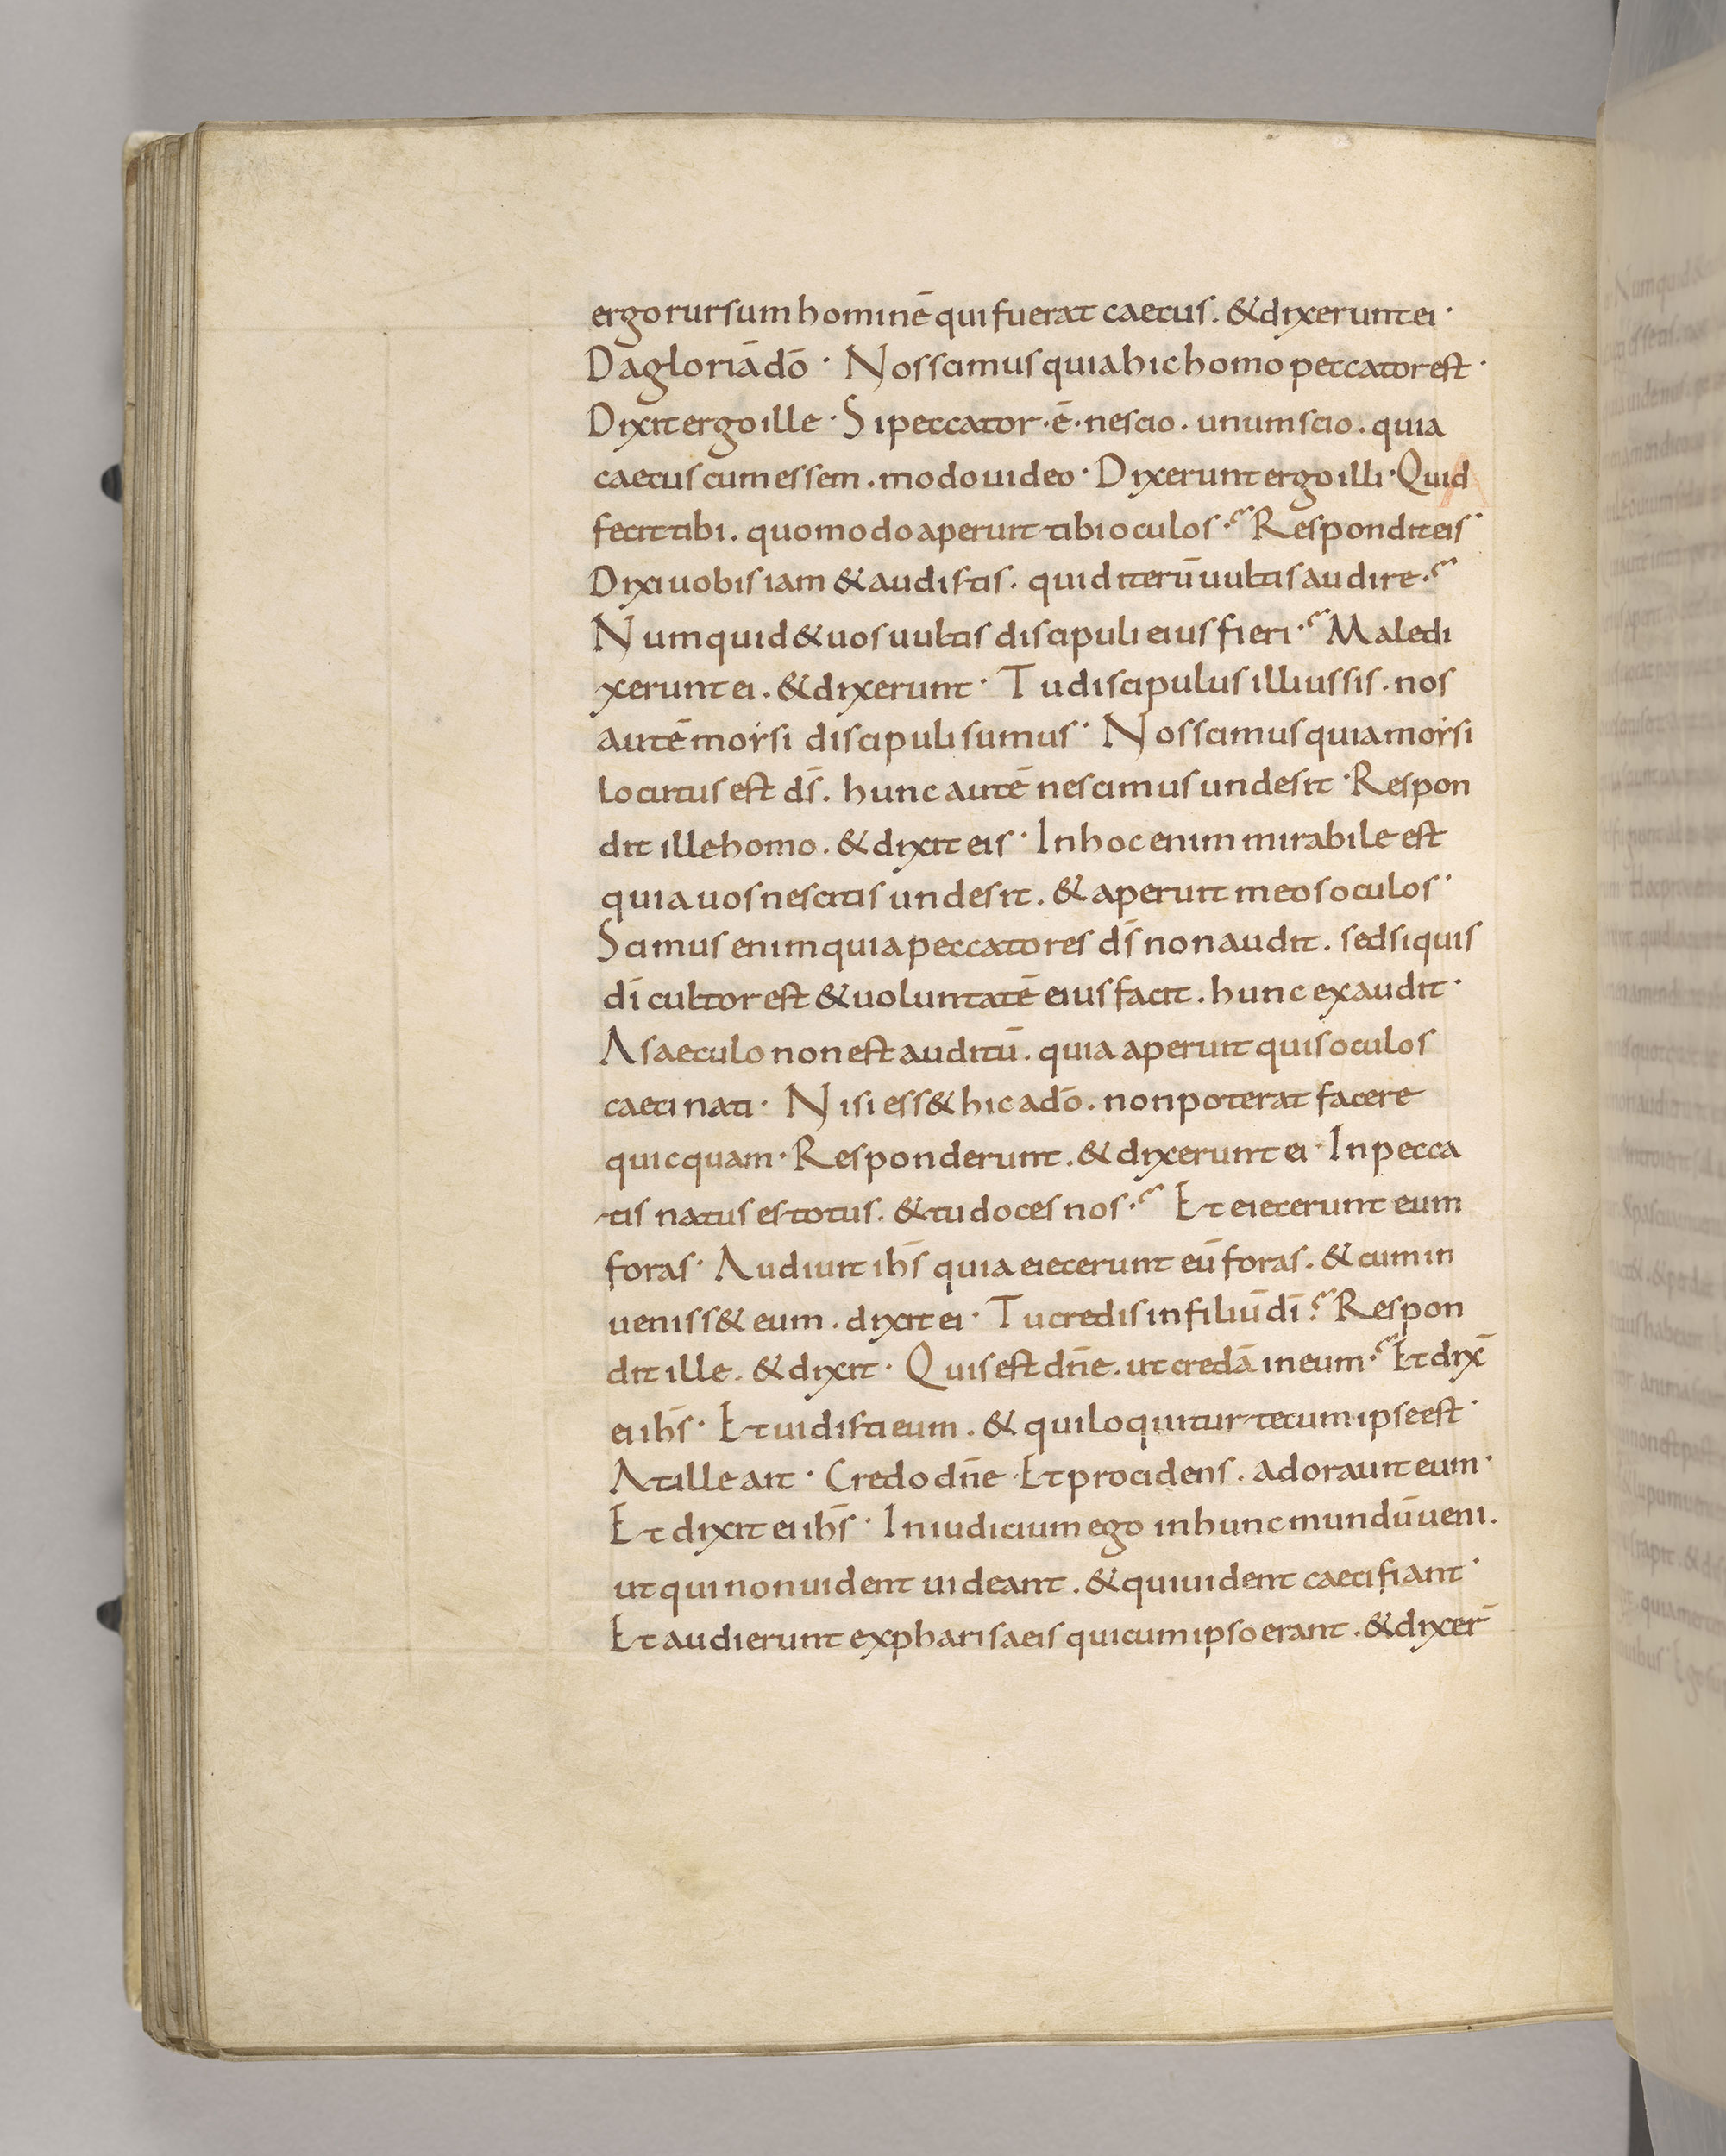 ergo rursum hominē qui fuerat caecus. & dixerunt ei·
Da gloriā dō· Nos scimus quia hic homo peccator est·
Dixit ergo ille· Si peccator·ē·nescio. unum scio. quia
caecus cum essem. modo uideo· Dixerunt ergo illi· Quid
fecit tibi. quomodo aperuit tibi oculos? Respondit eis·
Dixi uobis iam & audistis. quid iterū uultis audire?
Numquid & uos uultis discipuli eius fieri? Maledi
xerunt ei. & dixerunt· Tu discipulus illius sis. nos
autē moysi discipuli sumus· Nos scimus quia moysi
locutus est d̄s. hunc autē nescimus unde sit· Respon
dit ille homo. & dixit eis· In hoc enim mirabile est
quia uos nescitis unde sit. & aperuit meos oculos·
Scimus enim quia peccatores d̄s non audit. sed si quis
dī cultor est & uoluntatē eius facit. hunc exaudit·
A saeculo non est auditū. quia aperuit quis oculos
caeci nati· Nisi ess& hic a dō. non poterat facere
quicquam· Responderunt. & dixerunt ei· In pecca
tis natus es totus. & tu doces nos? Et eiecerunt eum
foras· Audiuit ih̄s quia eiecerunt eū foras. & cum in
ueniss& eum. dixit ei· Tu credis in filiū dī? Respon
dit ille. & dixit· Quis est dn̄e. ut credā in eum? Et dix̄
ei ih̄s· Et uidisti eum. & qui loquitur tecum ipse est·
At ille ait· Credo dn̄e· Et procidens. adorauit eum·
Et dixit ei ih̄s· In iudicium ego in hunc mundū ueni.
ut qui non uident uideant. & qui uident caeci fiant·
Et audierunt ex pharisaeis qui cum ipso erant. & dixer̄